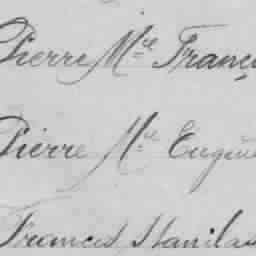 Pierre Mie Franç
Pierre Mie Eugèn
Francis Stanilas